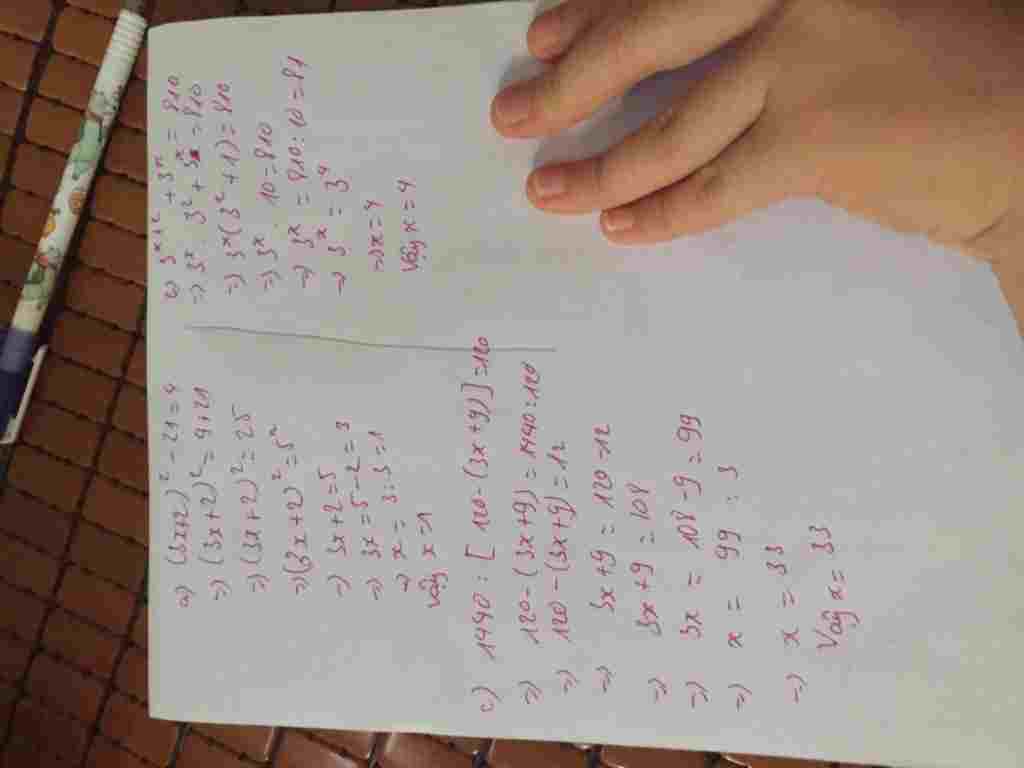 a) (3x+2)² - 21 = 4
=> (3x+2)² = 4+21
=> (3x+2)² = 25
=> (3x+2)² = 5²
=> 3x+2=5
=> 3x=5-2=3
=> x = 3:3=1
Vậy x=1
b) 3ˣ⁺² + 3ˣ = 810
=> 3ˣ . 3² + 3ˣ = 810
=> 3ˣ(3²+1) = 810
=> 3ˣ . 10 = 810
=> 3ˣ = 810:10 = 81
=> 3ˣ = 3⁴
=> x=4
Vậy x=4
c) 1440 : [120-(3x+9)] = 120
=> 120-(3x+9) = 1440:120
=> 120-(3x+9) = 12
=> 3x+9 = 120-12
=> 3x+9 = 108
=> 3x = 108-9 = 99
=> x = 99 : 3
=> x = 33
Vậy x = 33